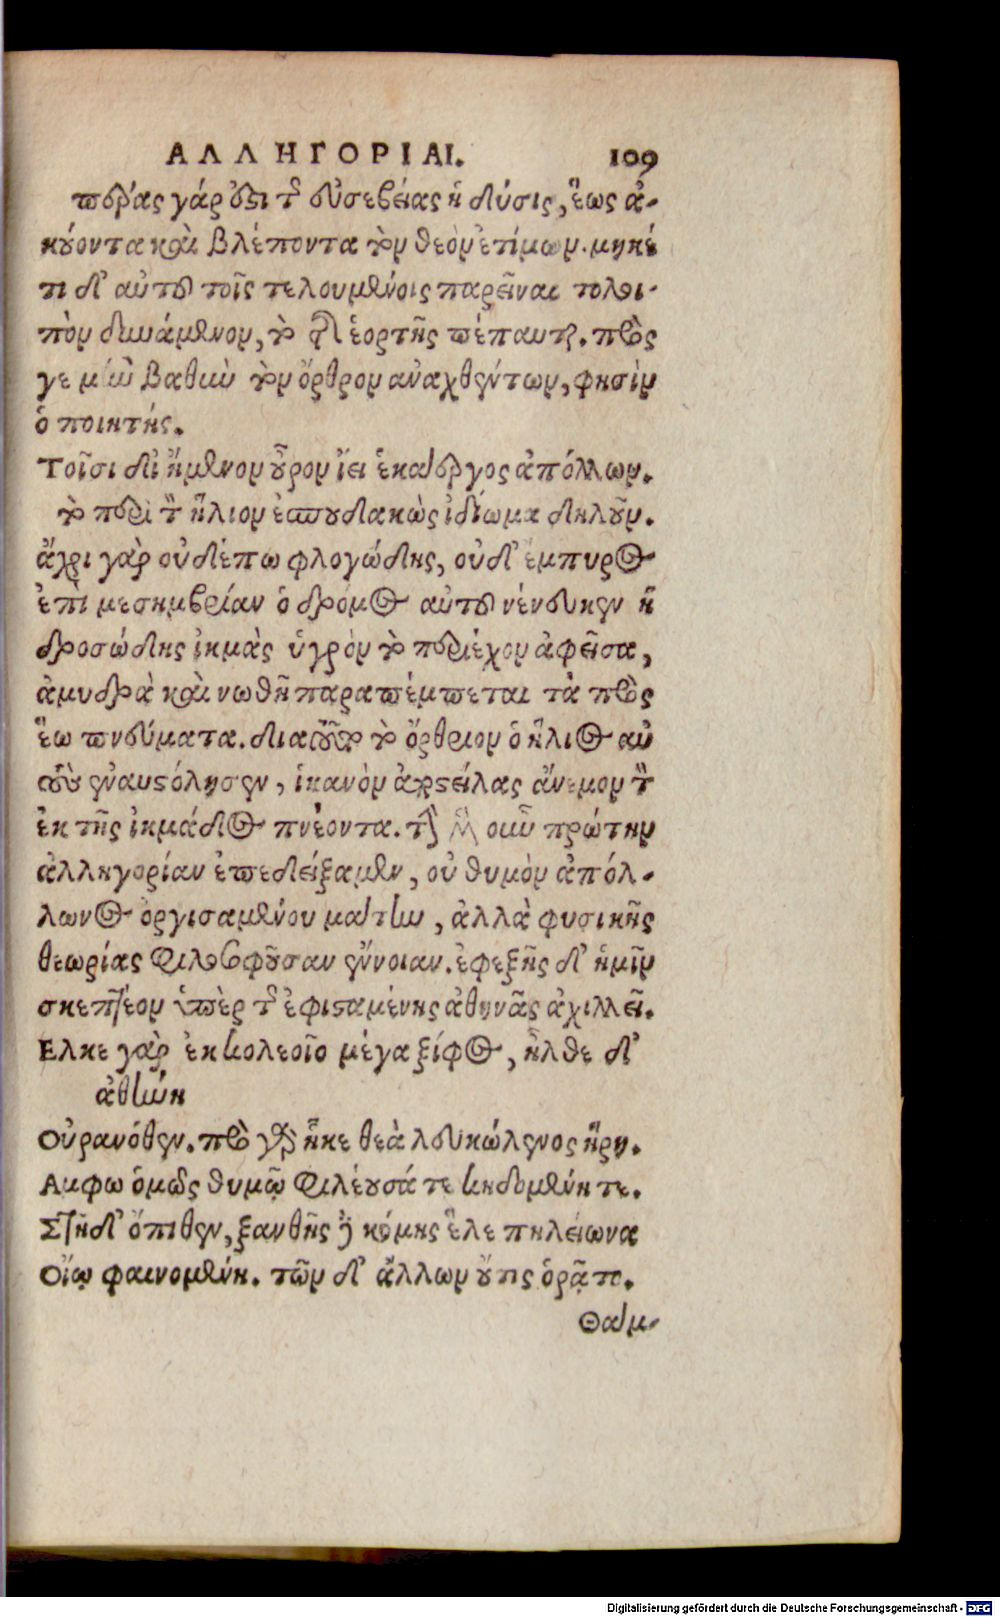 ΑΛΛΗΓΟΡΙΑΙ. 109
πέρας γάρ ἐστι τῆς εὐσεβείας ἡ δύσις, ἕως ἀ-
κούοντα καὶ βλέποντα τὸν θεὸν ἐτίμων. μηκέ
τι δ' αὐτοῦ τοῖς τελουμένοις παρεῖναι τολοι-
πὸν δυναμένου, τὸ τῆς ἑορτῆς πέπαυται. πρός
γε μὴν βαθιὺ τὸν ὄρθρον ἀναχθέντων, φησὶν
ὁ ποιητής.
Τοῖσι δὲ ἤμενον οὖρον ἵει ἑκάεργος ἀπόλλων.
τὸ περὶ τὸν ἥλιον ἐσπουδακὼς ἰδίωμα δηλοῦν.
ἄχρι γὰρ οὐδέπω φλογώδης, οὐδ' ἔμπυρος
ἐπὶ μεσημβρίαν ὁ δρόμος αὐτοῦ νένευκεν ἡ
δροσώδης ἰκμὰς ὑγρὸν τὸ περιέχον ἀφεῖσα,
ἀμυδρὰ καὶ νωθῆ παραπέμπεται τὰ πρὸς
ἕω πνεύματα. διατοῦτο τὸ ὄρθριον ὁ ἥλιος αὐ
τοὺς ἐναυστόλησεν, ἱκανὸν ἀποστείλας ἄνεμον τὸν
ἐκ τῆς ἰκμάδος πνέοντα. τὴν μὲν οὖν πρώτην
ἀλληγορίαν ἐπεδείξαμεν, οὐ θυμὸν ἀπόλ-
λωνος ὀργισαμένου μάτην, ἀλλὰ φυσικῆς
θεωρίας φιλοσοφοῦσαν ἔννοιαν. ἐφεξῆς δ' ἡμῖν
σκεπτέον ὑπὲρ τῆς ἐφισταμένης ἀθηνᾶς ἀχιλλεῖ.
Ελκε γὰρ ἐκ κολεοῖο μέγα ξίφος, ἦλθε δ'
ἀθήνη
Οὐρανόθεν. πρὸ γὰρ ἧκε θεὰ λευκώλενος ἥρη.
Αμφω ὁμῶς θυμῷ φιλέουσά τε κηδομένη τε.
Στῆ δ' ὄπιθεν, ξανθῆς δὲ κόμης ἕλε πηλείωνα
Οἴῳ φαινομένη. τῶν δ' ἄλλων οὔτις ὁρᾶτο.
Θάμ-
Digitalisierung gefördert durch die Deutsche Forschungsgemeinschaft - DFG